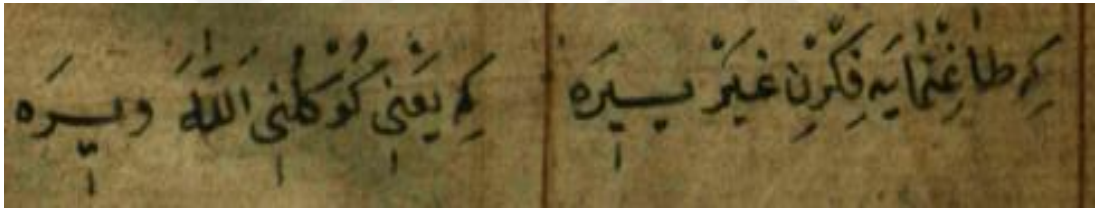 كِه طاغِتْمايَه فِكْرِنِ غَيْرْ يِيرَه
كِه يَعْنِي كُوكْلُنِي اللّٰهَ ويِرَه